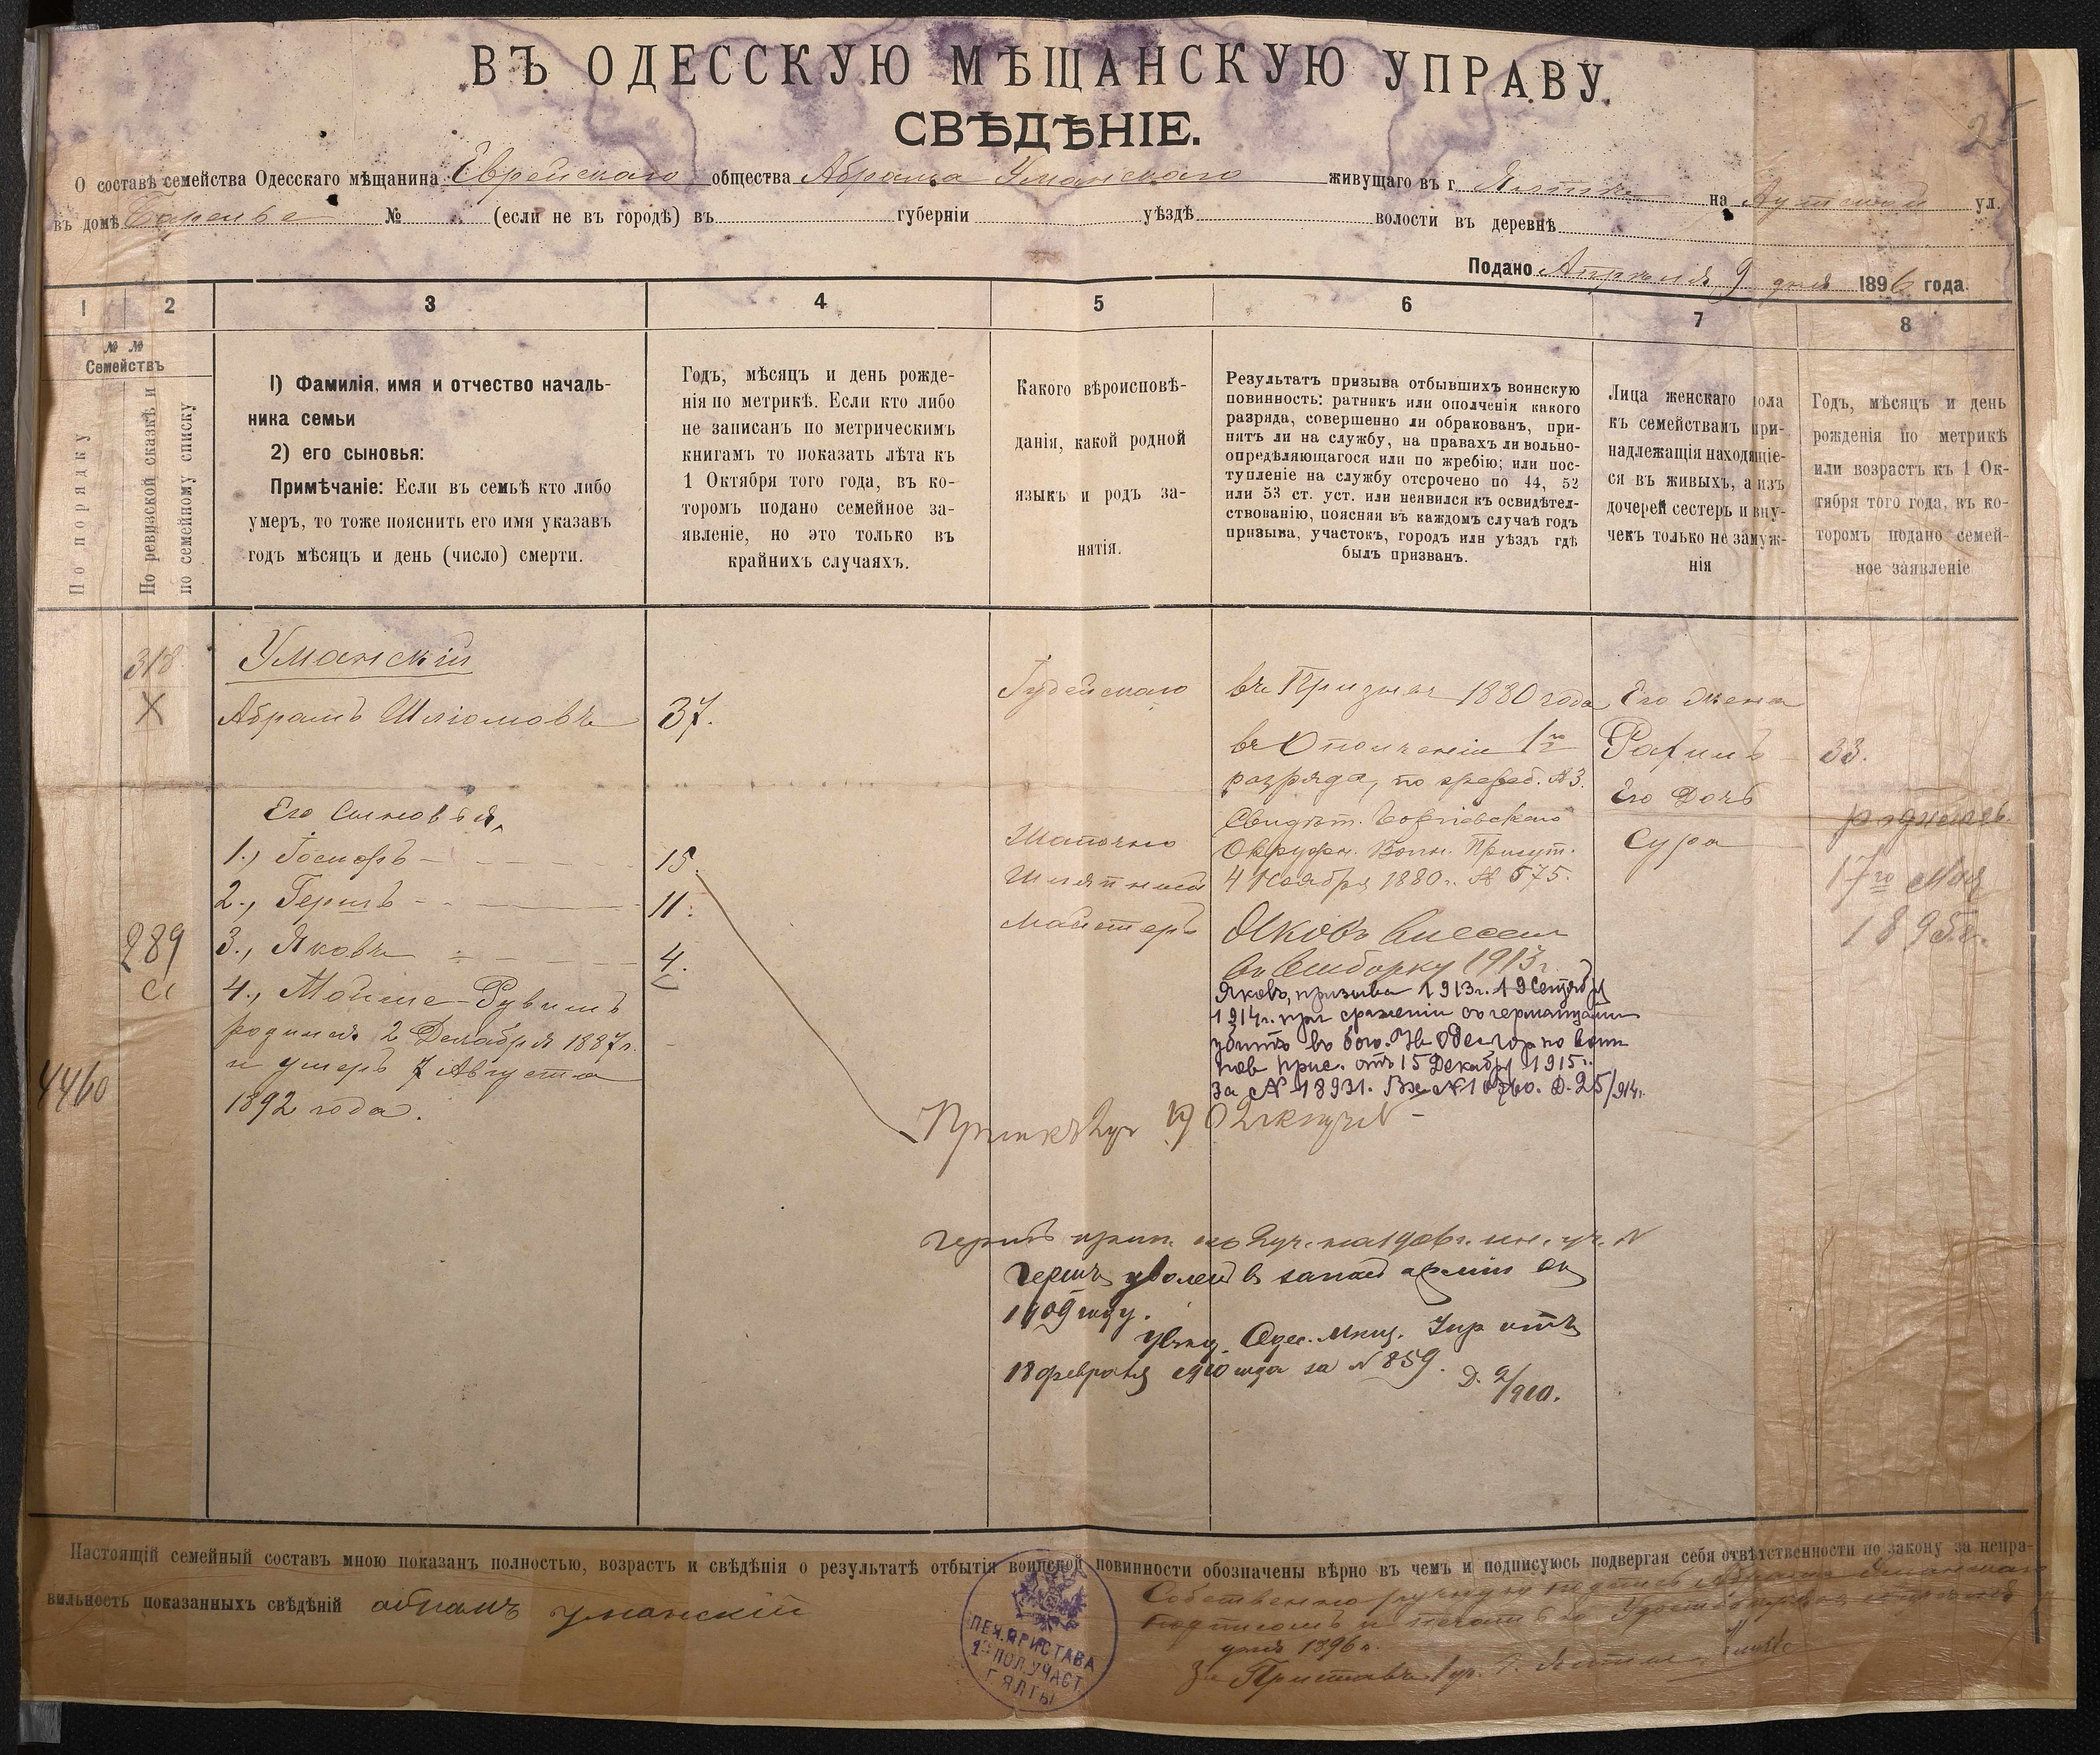 ВЪ ОДЕССКУЮ МѢЩАНСКУЮ УПРАВУ.
СВѢДѢНІЕ.
О составѣ семейства Одесскаго мѣщанина Еврейскаго общества Абрама Уманскаго живущаго въ г. Ялтѣ на Аутской ул.
въ домѣ № (если не въ городѣ) въ губерніи уѣздѣ волости въ деревнѣ
Подано Апрѣля 9 дня 1896 года.
1 2 3 4 5 6 7 8
№ № Семействъ
По порядку
По ревизской сказкѣ и по семейному списку
1) Фамилія, имя и отчество началь-
ника семьи
2) его сыновья:
Примѣчаніе: Если въ семьѣ кто либо
умеръ, то тоже пояснить его имя указавъ
годъ мѣсяцъ и день (число) смерти.
Годъ, мѣсяцъ и день рожде-
нія по метрикѣ. Если кто либо
не записанъ по метрическимъ
книгамъ то показать лѣта къ
1 Октября того года, въ ко-
торомъ подано семейное за-
явленіе, но это только въ
крайнихъ случаяхъ.
Какого вѣроисповѣ-
данія, какой родной
языкъ и родъ за-
нятія.
Результатъ призыва отбывшихъ воинскую
повинность: ратникъ или ополченія какого
разряда, совершенно ли обракованъ, при-
нятъ ли на службу, на правахъ ли вольно-
опредѣляющагося или по жребію; или пос-
тупленіе на службу отсрочено по 44, 52
или 53 ст. уст. или неявился къ освидѣтел-
ствованію, поясняя въ каждомъ случаѣ годъ
призыва, участокъ, городъ или уѣздъ гдѣ
былъ призванъ.
Лица женскаго пола
къ семействамъ при-
надлежащія находящіе-
ся въ живыхъ, а изъ
дочерей сестеръ и вну-
чекъ только не замуж-
нія
Годъ, мѣсяцъ и день
рожденія по метрикѣ
или возрастъ къ 1 Ок-
тября того года, въ ко-
торомъ подано семей-
ное заявленіе
318
X
Уманскій
Абрамъ Шліомовъ 37.
Его Сыновья,
1., Іосифъ 15.
2., Гершъ 11.
3., Яковъ 4.
4., Мойше-Рувимъ
родился 2 Декабря 1887 г.
и умеръ 7 Августа
1892 года.
289
4460
Іудейскаго
Шапочно
мастеръ
въ Призывъ 1880 года
въ Ополченіи 1го
разряда, по жреб. №3.
Свидѣт.
Окружн. Воин. Присут.
4 Ноября 1880 г. № 575.
Яковъ внесенъ
въ выборку 1913 г.
Яковъ, призыва 1913 г. 19 Сентября
1914 г. при сраженіи съ германцами
убитъ въ бою.
пов. прис. отъ 15 Декабря 1915 г.
за № 18931. Д. 25/914 г.
Его жена
Рахиль 33.
Его Дочь
Сура
родилась
17го Мая
1895 г.
Гершъ уволенъ въ запасъ арміи въ
1909 году.
Увѣд. Одес. Мѣщ. Упр. отъ
18 февраля 1910 года за № 859. Д. 2/910.
Настоящій семейный составъ мною показанъ полностью, возрастъ и свѣдѣнія о результатѣ отбытія воинской повинности обозначены вѣрно въ чемъ и подписуюсь подвергая себя отвѣтственности по закону за непра-
вильность показанныхъ свѣдѣній абрамъ уманскій
Собственноручную подпись Абрама Уманскаго
подписомъ и печатью
1896 г.
За Пристава
ПЕЧ. ПРИСТАВА
1го ПОЛ. УЧАСТ.
Г. ЯЛТЫ